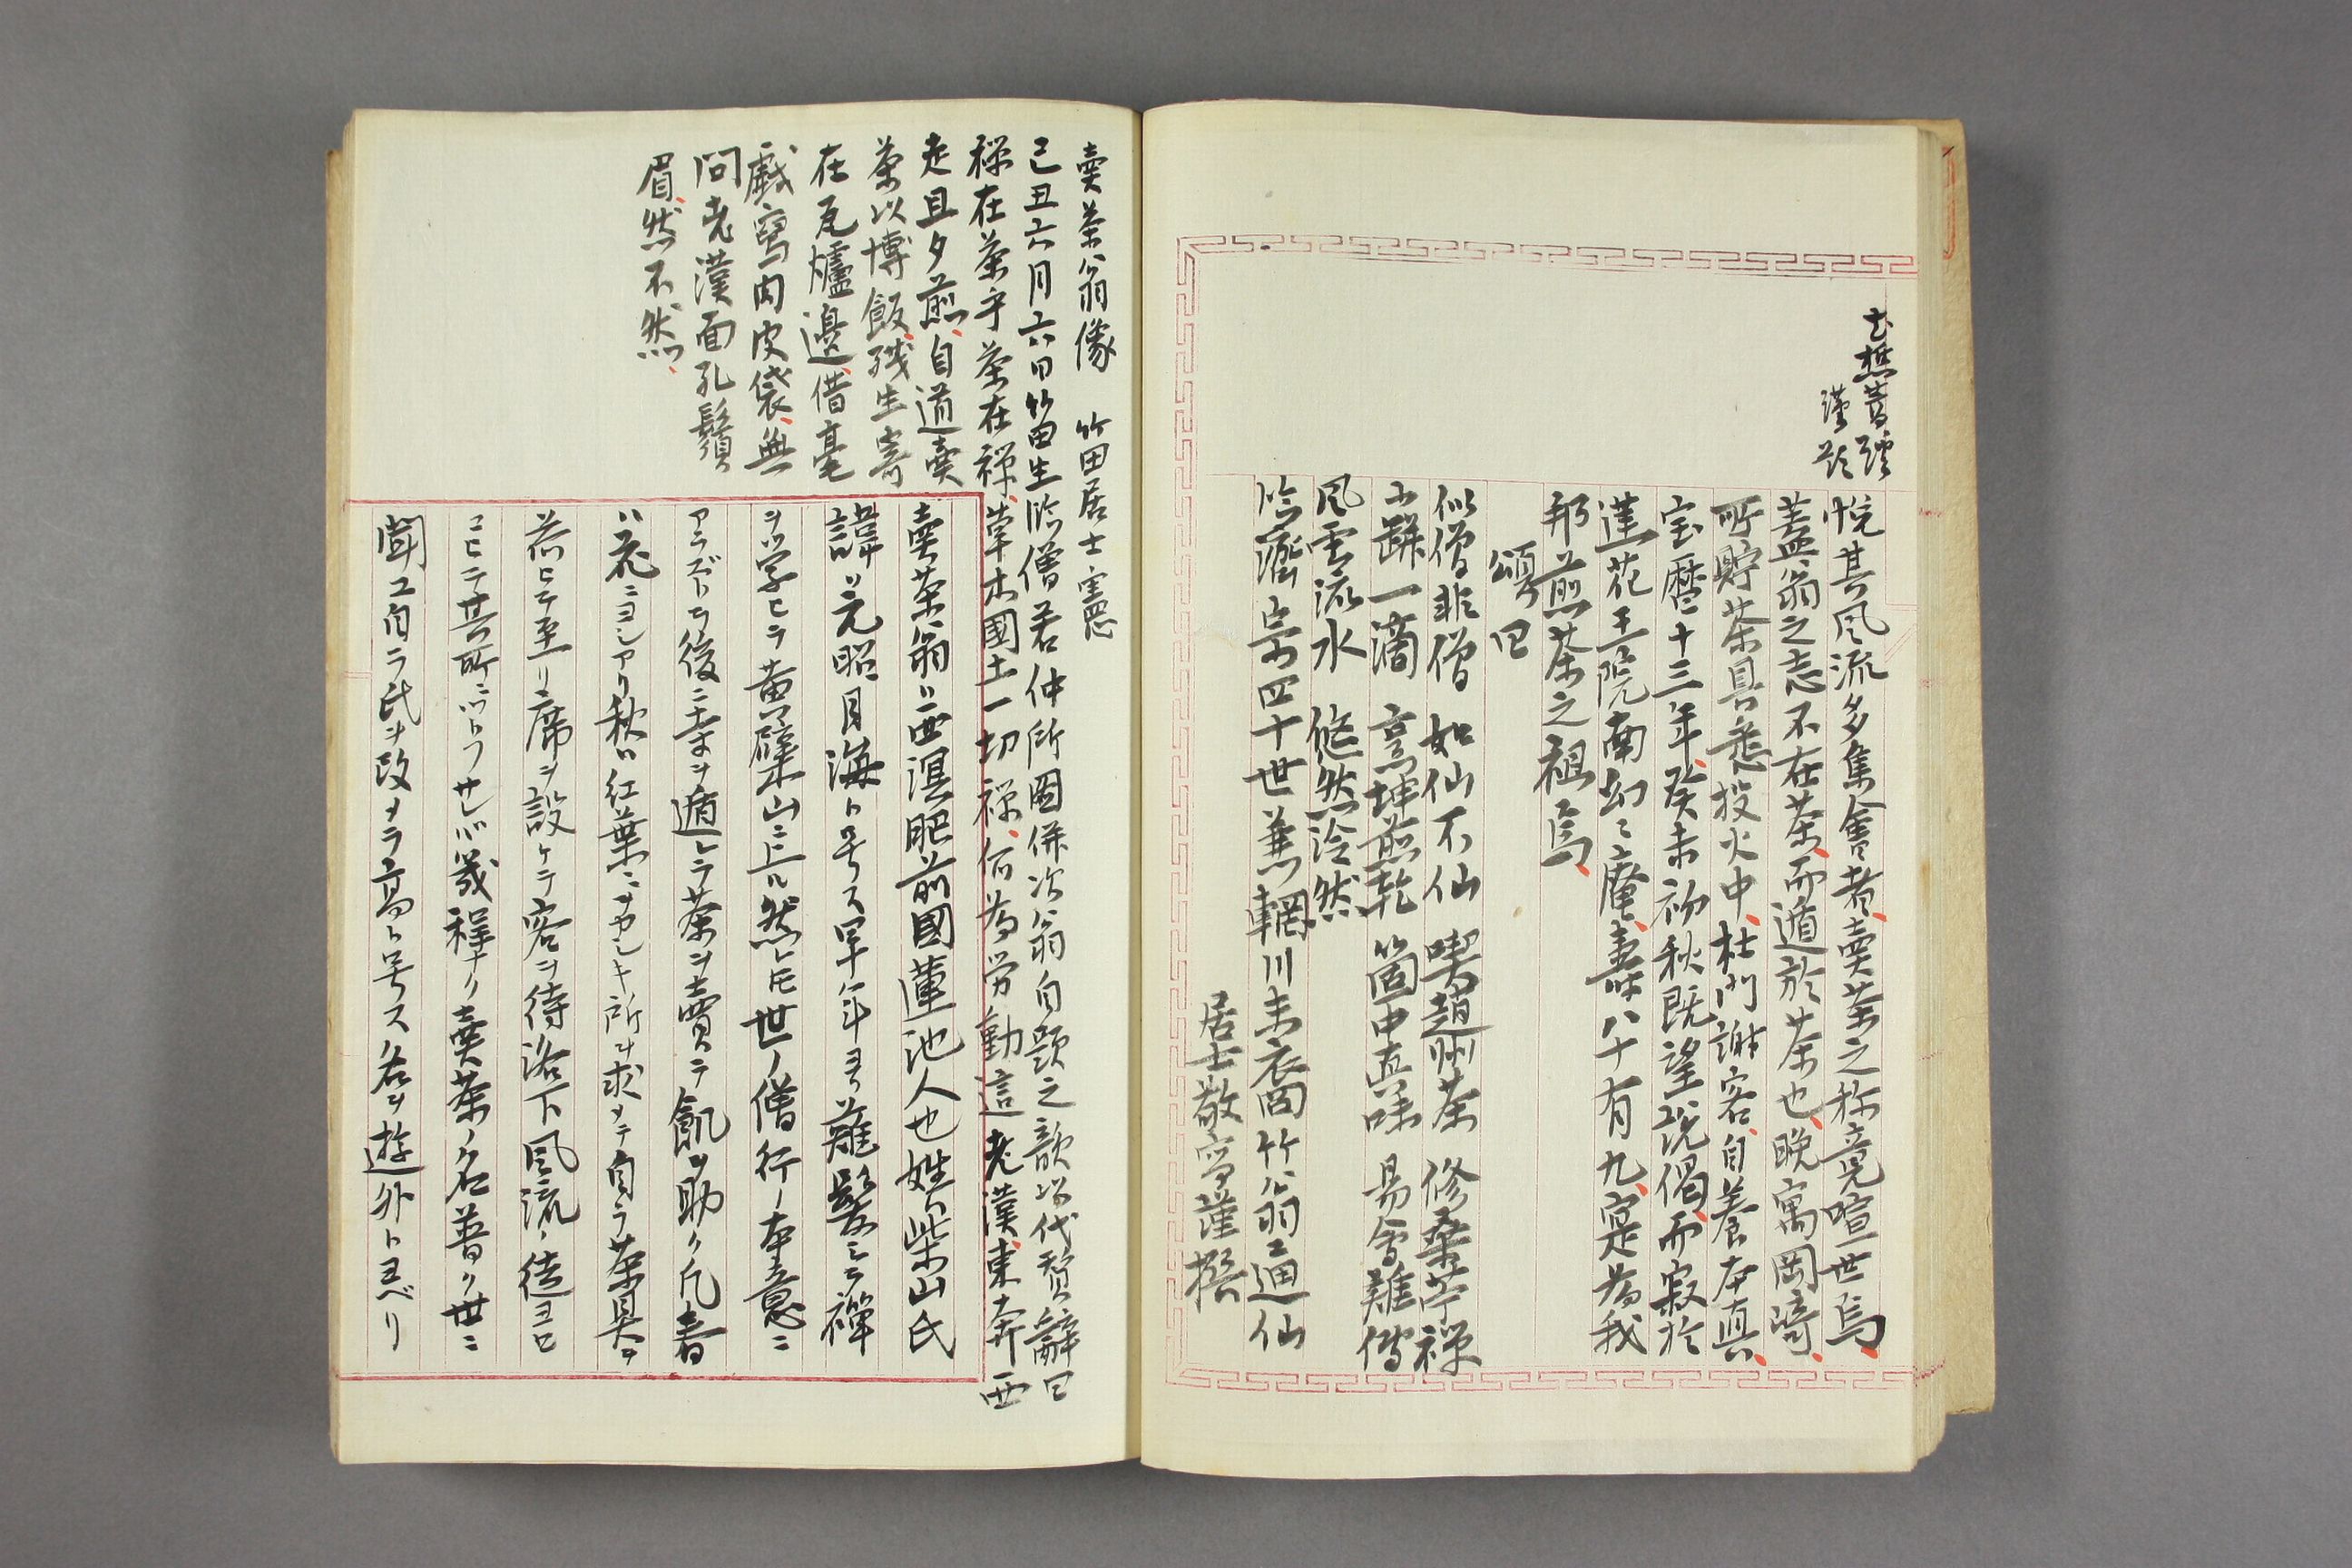 謹題
悦其風流多集會者、賣茶之称竟喧世焉、
蓋翁之志不在茶、而遁於茶也、晩寓岡﨑、
所貯茶具悉投火中、杜門謝客、自養本真、
宝暦十三年、癸未初秋既望説偈、而寂於
蓮花王院南幻々庵、壽八十有九、寔為我
邦煎茶之祖焉、
頌曰
似僧非僧 如仙不仙 喫趙州茶 修桑苧禅
小瓶一滴 烹坤煎乾 箇中真味 易會難傳
風雲流水 悠然泠然
臨濟宗四十世兼輞川末裔竹翁逼仙
居士敬寫謹撰
賣茶翁像 竹田居士憲
己丑六月六日笛田生臨僧若仲所圖併次翁自題之韻以代賛辭曰
禅在茶乎茶在禅、草木國土一切禅、何為労動這老漢、東奔西
走且夕煎、自道賣
茶以博飯、残生寄
在瓦爐邊、借毫
戯寫肉皮袋、無
問老漢面孔鬚
眉、然不然、
賣茶翁ハ西溟肥前國蓮池人也姓ハ柴山氏
諱ハ元昭月海ト号ス早年ヨリ薙髪シテ禅
ヲ学ヒテ黄檗山ニ上ル然レ𪜈世ノ僧行ノ本意ニ
アラズトテ後ニ寺ヲ遁レテ茶ヲ賣テ飢ヲ助ク凡春
ハ花ニヨシアリ秋ハ紅葉ニヲカシキ所ヲ求メテ自ラ茶具ヲ
荷ヒテ至リ席ヲ設ケテ客ヲ待洛下風流ノ徒ヨロ
コヒテ其所ニツトフサレハ幾程ナク賣茶ノ名普ク世ニ
聞ユ自ラ氏ヲ改メテ高ト号ス名ヲ遊外トヨベリ